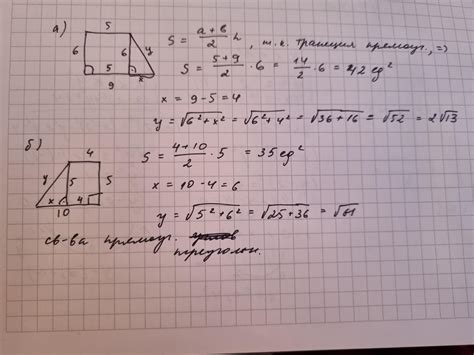 а)
5
6 6 y
5 x
9
S = a+b/2 h, т.к. трапеция прямоуг., =>
S = 5+9/2 · 6 = 14/2 · 6 = 42 ед²
x = 9-5 = 4
y = √6²+x² = √6²+4² = √36+16 = √52 = 2√13
б)
4
y 5 5
x 4
10
S = 4+10/2 · 5 = 35 ед²
x = 10-4 = 6
y = √5²+6² = √25+36 = √61
св-ва прямоуг.
треуголн.